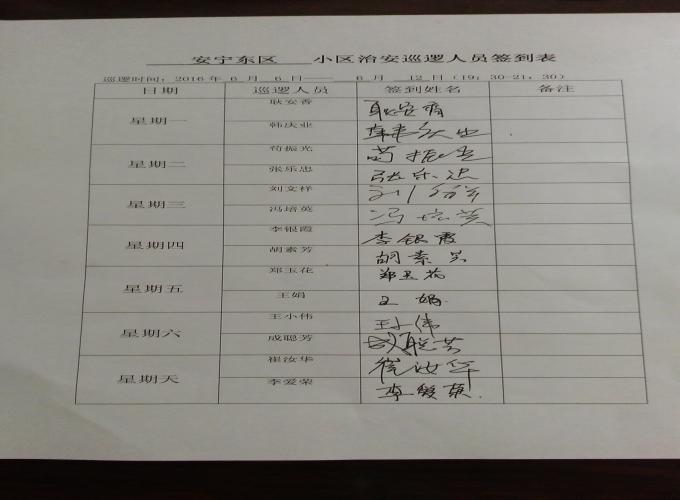 安宁东区 小区治安巡逻人员签到表
巡逻时间：2016 年 6 月 6 日—— 6 月 12 日（19：30-21：30）
日期 巡逻人员 签到姓名 备注
星期一 耿安香 耿安香
韩庆业 韩庆业
星期二 苟振光 苟振光
张乐忠 张乐忠
星期三 刘文祥 刘文祥
冯培英 冯培英
星期四 李银霞 李银霞
胡素芳 胡素芳
星期五 郑玉花 郑玉花
王娟 王娟
星期六 王小伟 王小伟
成聪芳 成聪芳
星期天 崔汝华 崔汝华
李爱荣 李爱荣